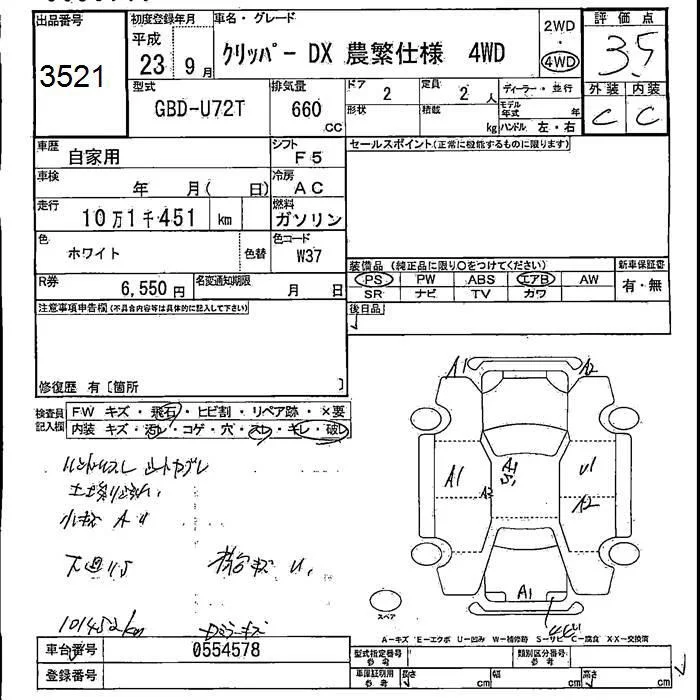 出品番号 3521
初度登録年月 平成 23 9月
車名・グレード クリッパー DX 農繁仕様 4WD
2WD
4WD
評価点 3.5
外装 内装
C C
型式 GBD-U72T
排気量 660 cc
ドア 2
定員 2 人
形状
積載 kg
ディーラー・並行
モデル年式 年
ハンドル 左・右
車歴 自家用
シフト F5
セールスポイント(正常に機能するものに限ります)
車検 年 月( 日)
冷房 AC
走行 10万1千451 km
燃料 ガソリン
色 ホワイト 色替
色コード W37
装備品 (純正品に限り○をつけてください)
新車保証書
PS PW ABS エアB AW
有・無
SR ナビ TV カワ
R券 6,550円
名変通知期限 月 日
注意事項申告欄(不具合内容等は具体的に記入して下さい)
後日品
修復歴 有〔箇所 〕
検査員記入欄
FW キズ・飛石・ヒビ割・リペア跡・×要
内装 キズ・汚レ・コゲ・穴・スレ・キレ・破レ
小キズ A U
下廻りS
荷台キズ U
101452km
A1 A2
A1 A1 S1 U1
A2 A2
A1
スペア
A-キズ E-エクボ U-凹み W-補修跡 S-サビ C-腐食 XX-交換済
車台番号 0554578
登録番号
型式指定番号 参考
類別区分番号 参考
車庫証明用 参考
長さ cm
幅 cm
高さ cm